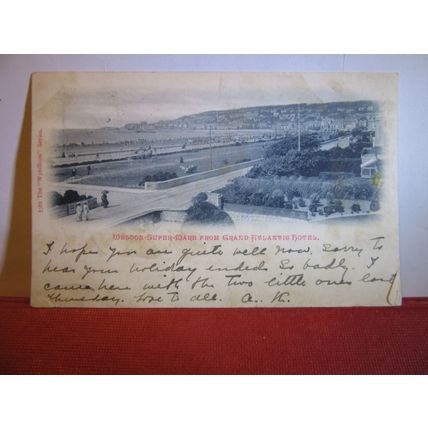 5202 The "Wyndham" Series.
Weston-Super-Mare from Grand Atlantic Hotel.
I hope you are quite well now. Sorry to
hear your holiday ended so badly. I
came here with the two little ones last
Thursday. Love to all. A. K.